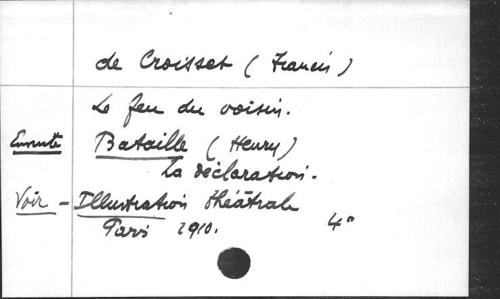 de Croisset (Francis)
Le feu du voisin.
Ensuite Bataille (Henry)
La déclaration.
Voir - Illustration théâtrale
Paris 1910. 4°